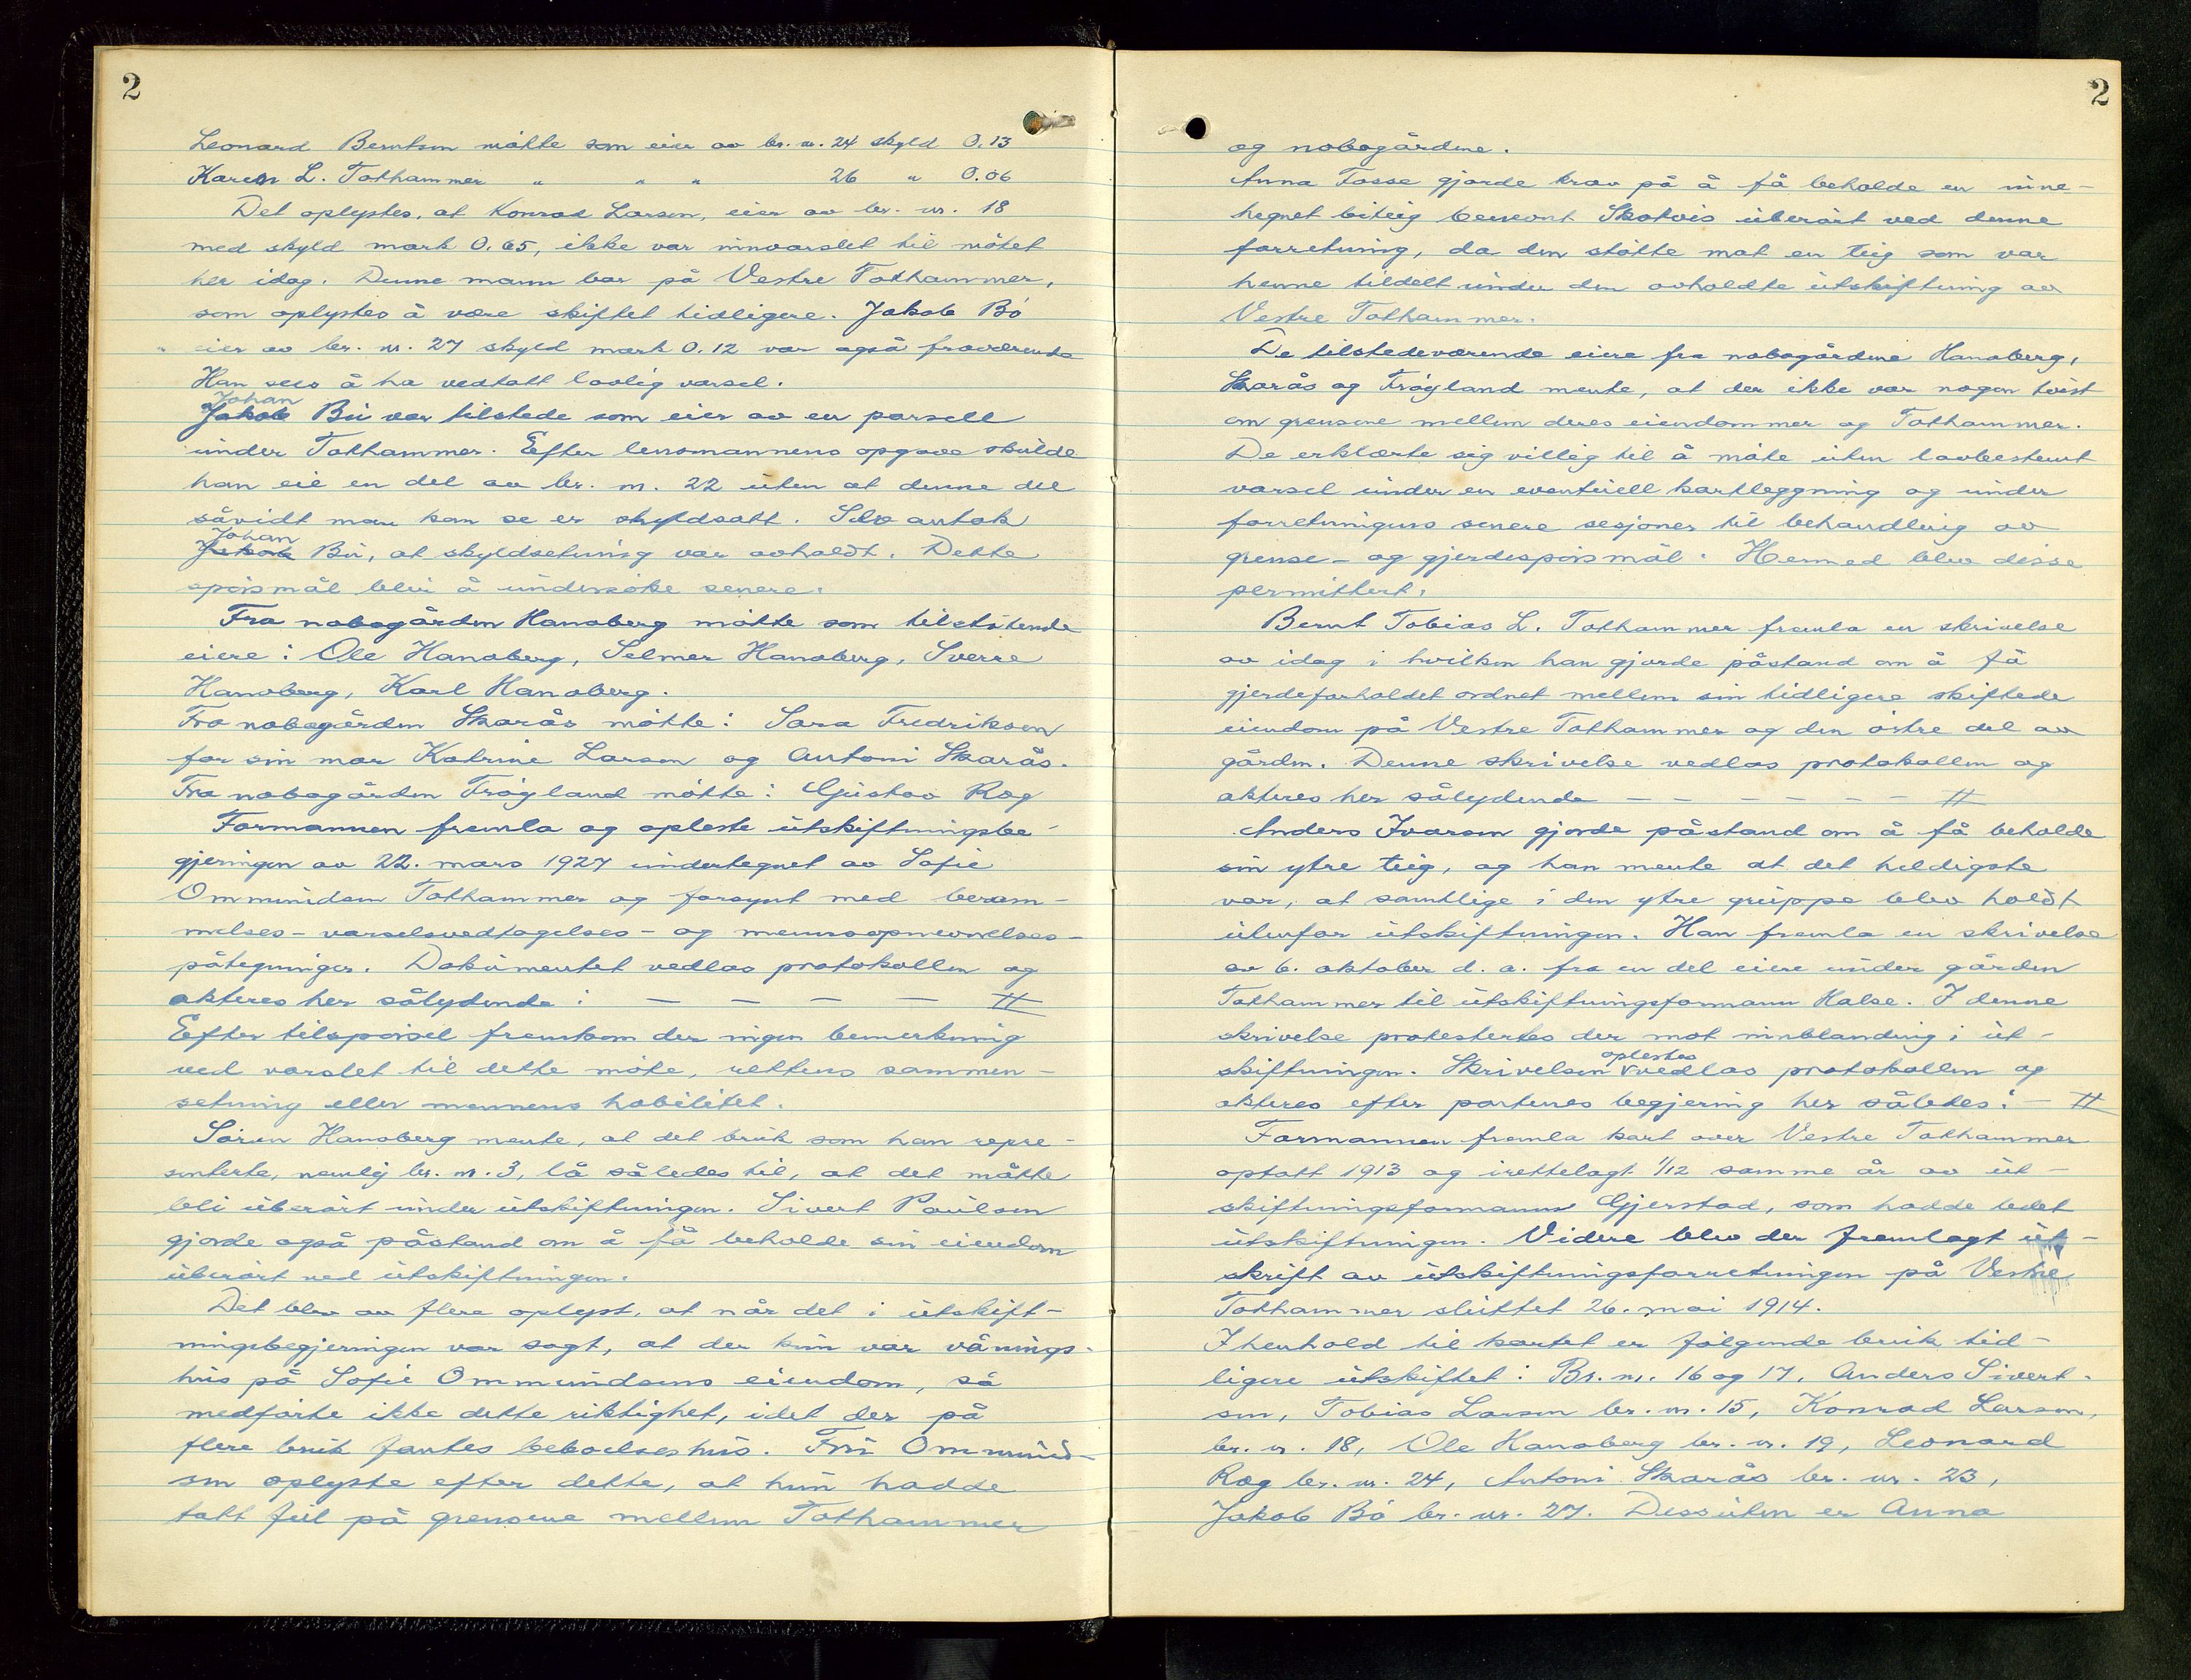 2
Leonard Berntsen møtte som eier av br. nr. 24 skyld 0.13
Karen L. Tothammer " " " 26 " 0.06
Det oplystes, at Konrad Larsen, eier av br. nr. 18
med skyld mark 0.65, ikke var innvarslet til møtet
her idag. Denne mann bor på Vestre Tothammer,
som oplystes å være skiftet tidligere. Jakob Bö
eier av br. nr. 27 skyld mark 0.12 var også fraværende
Han sees å ha vedtatt lovlig varsel.
Johan
Jakob Bu var tilstede som eier av en parsell
under Tothammer. Efter lensmannens opgave skulde
han eie en del av br. nr. 22 uten at denne del
såvidt man kan se er skyldsatt. Selv antok
Johan
Jakob Bu, at skyldsetning var avholdt. Dette
spörsmål blir å undersöke senere.
Fra nabogården Hanaberg mötte som tilstötende
eiere: Ole Hanaberg, Selmer Hanaberg, Sverre
Hanaberg, Karl Hanaberg.
Fra nabogården Skarås mötte: Sara Fredriksen
for sin mor Katrine Larsen og Antoni Skarås.
Fra nabogården Fröyland mötte: Gustav Røg
Formannen fremla og opleste utskiftningsbe-
gjeringen av 22. mars 1927 undertegnet av Sofie
Ommundsen Tothammer og forsynt med beram-
melses- varselsvedtagelses- og mennsopnevnelses-
påtegninger. Dokumentet vedlas protokollen og
akteres her sålydende: — — — — #
Efter tilspörsel fremkom der ingen bemerkning
ved varslet til dette möte, rettens sammen-
setning eller mennenes habilitet.
Sören Hanaberg mente, at det bruk som han repre-
senterte, nemlig br. nr. 3, lå således til, at det måtte
bli uberört under utskiftningen. Sivert Paulsen
gjorde også påstand om å få beholde sin eiendom
uberört ved utskiftningen.
Det blev av flere oplyst, at når det i utskift-
ningsbegjeringen var sagt, at der kun var vånings-
hus på Sofie Ommundsens eiendom, så
medförte ikke dette riktighet, idet der på
flere bruk fantes beboelseshus. Fru Ommund-
sen oplyste efter dette, at hun hadde
tatt feil på grensene mellem Tothammer
2
og nabogårdene.
Anna Fosse gjorde krav på å få beholde en inne-
hegnet biteig benevnt Skotvis uberört ved denne
forretning, da den stötte mot en teig som var
henne tildelt under den avholdte utskiftning av
Vestre Tothammer.
De tilstedeværende eiere fra nabogårdene Hanaberg,
Skarås og Fröyland mente, at der ikke var nogen tvist
om grensene mellem deres eiendommer og Tothammer.
De erklærte sig villig til å möte uten lovbestemt
varsel under en eventuell kartleggning og under
forretningens senere sesjoner til behandling av
grense- og gjerdespörsmål. Hermed blev disse
permittert.
Bernt Tobias L. Tothammer fremla en skrivelse
av idag i hvilken han gjorde påstand om å få
gjerdeforholdet ordnet mellem sin tidligere skiftede
eiendom på Vestre Tothammer og den östre del av
gården. Denne skrivelse vedlas protokollen og
akteres her sålydende — — — — — — #
Anders Ivarsen gjorde påstand om å få beholde
sin ytre teig, og han mente at det heldigste
var, at samtlige i den ytre gruppe blev holdt
utenfor utskiftningen. Han fremla en skrivelse
av 6. oktober d. a. fra en del eiere under gården
Tothammer til utskiftningsformann Halse. I denne
skrivelse protestertes der mot innblanding i ut-
oplestes
skiftningen. Skrivelsen v vedlas protokollen og
akteres efter partenes begjering her således: — #
Formannen fremla kart over Vestre Tothammer
optatt 1913 og irettelagt 1/12 samme år av ut-
skiftningsformann Gjerstad, som hadde ledet
utskiftningen. Videre blev der fremlagt ut-
skrift av utskiftningsforretningen på Vestre
Tothammer sluttet 26. mai 1914.
I henhold til kartet er fölgende bruk tid-
ligere utskiftet: Br. nr. 16 og 17, Anders Sivert-
sen, Tobias Larsen br. nr. 15, Konrad Larsen,
br. nr. 18, Ole Hanaberg br. nr. 19, Leonard
Røg br. nr. 24, Antoni Skarås br. nr. 23,
Jakob Bö br. nr. 27. Dessuten er Anna